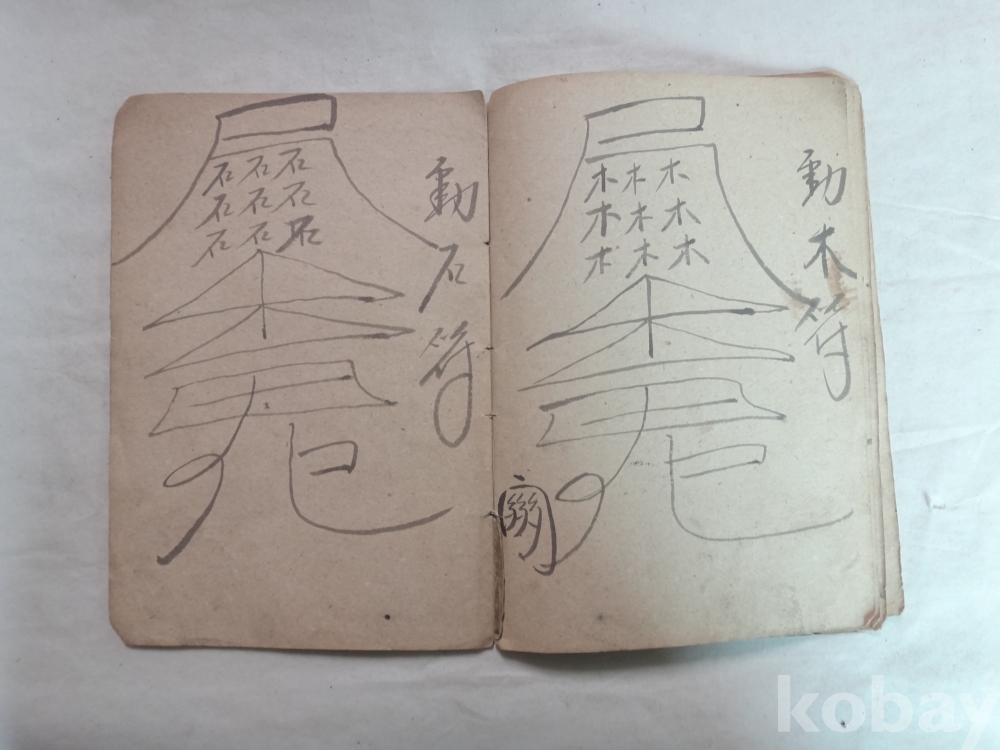 動木符
木木木
木木木
木木木
動石符
石石石
石石石
石石石
kobay